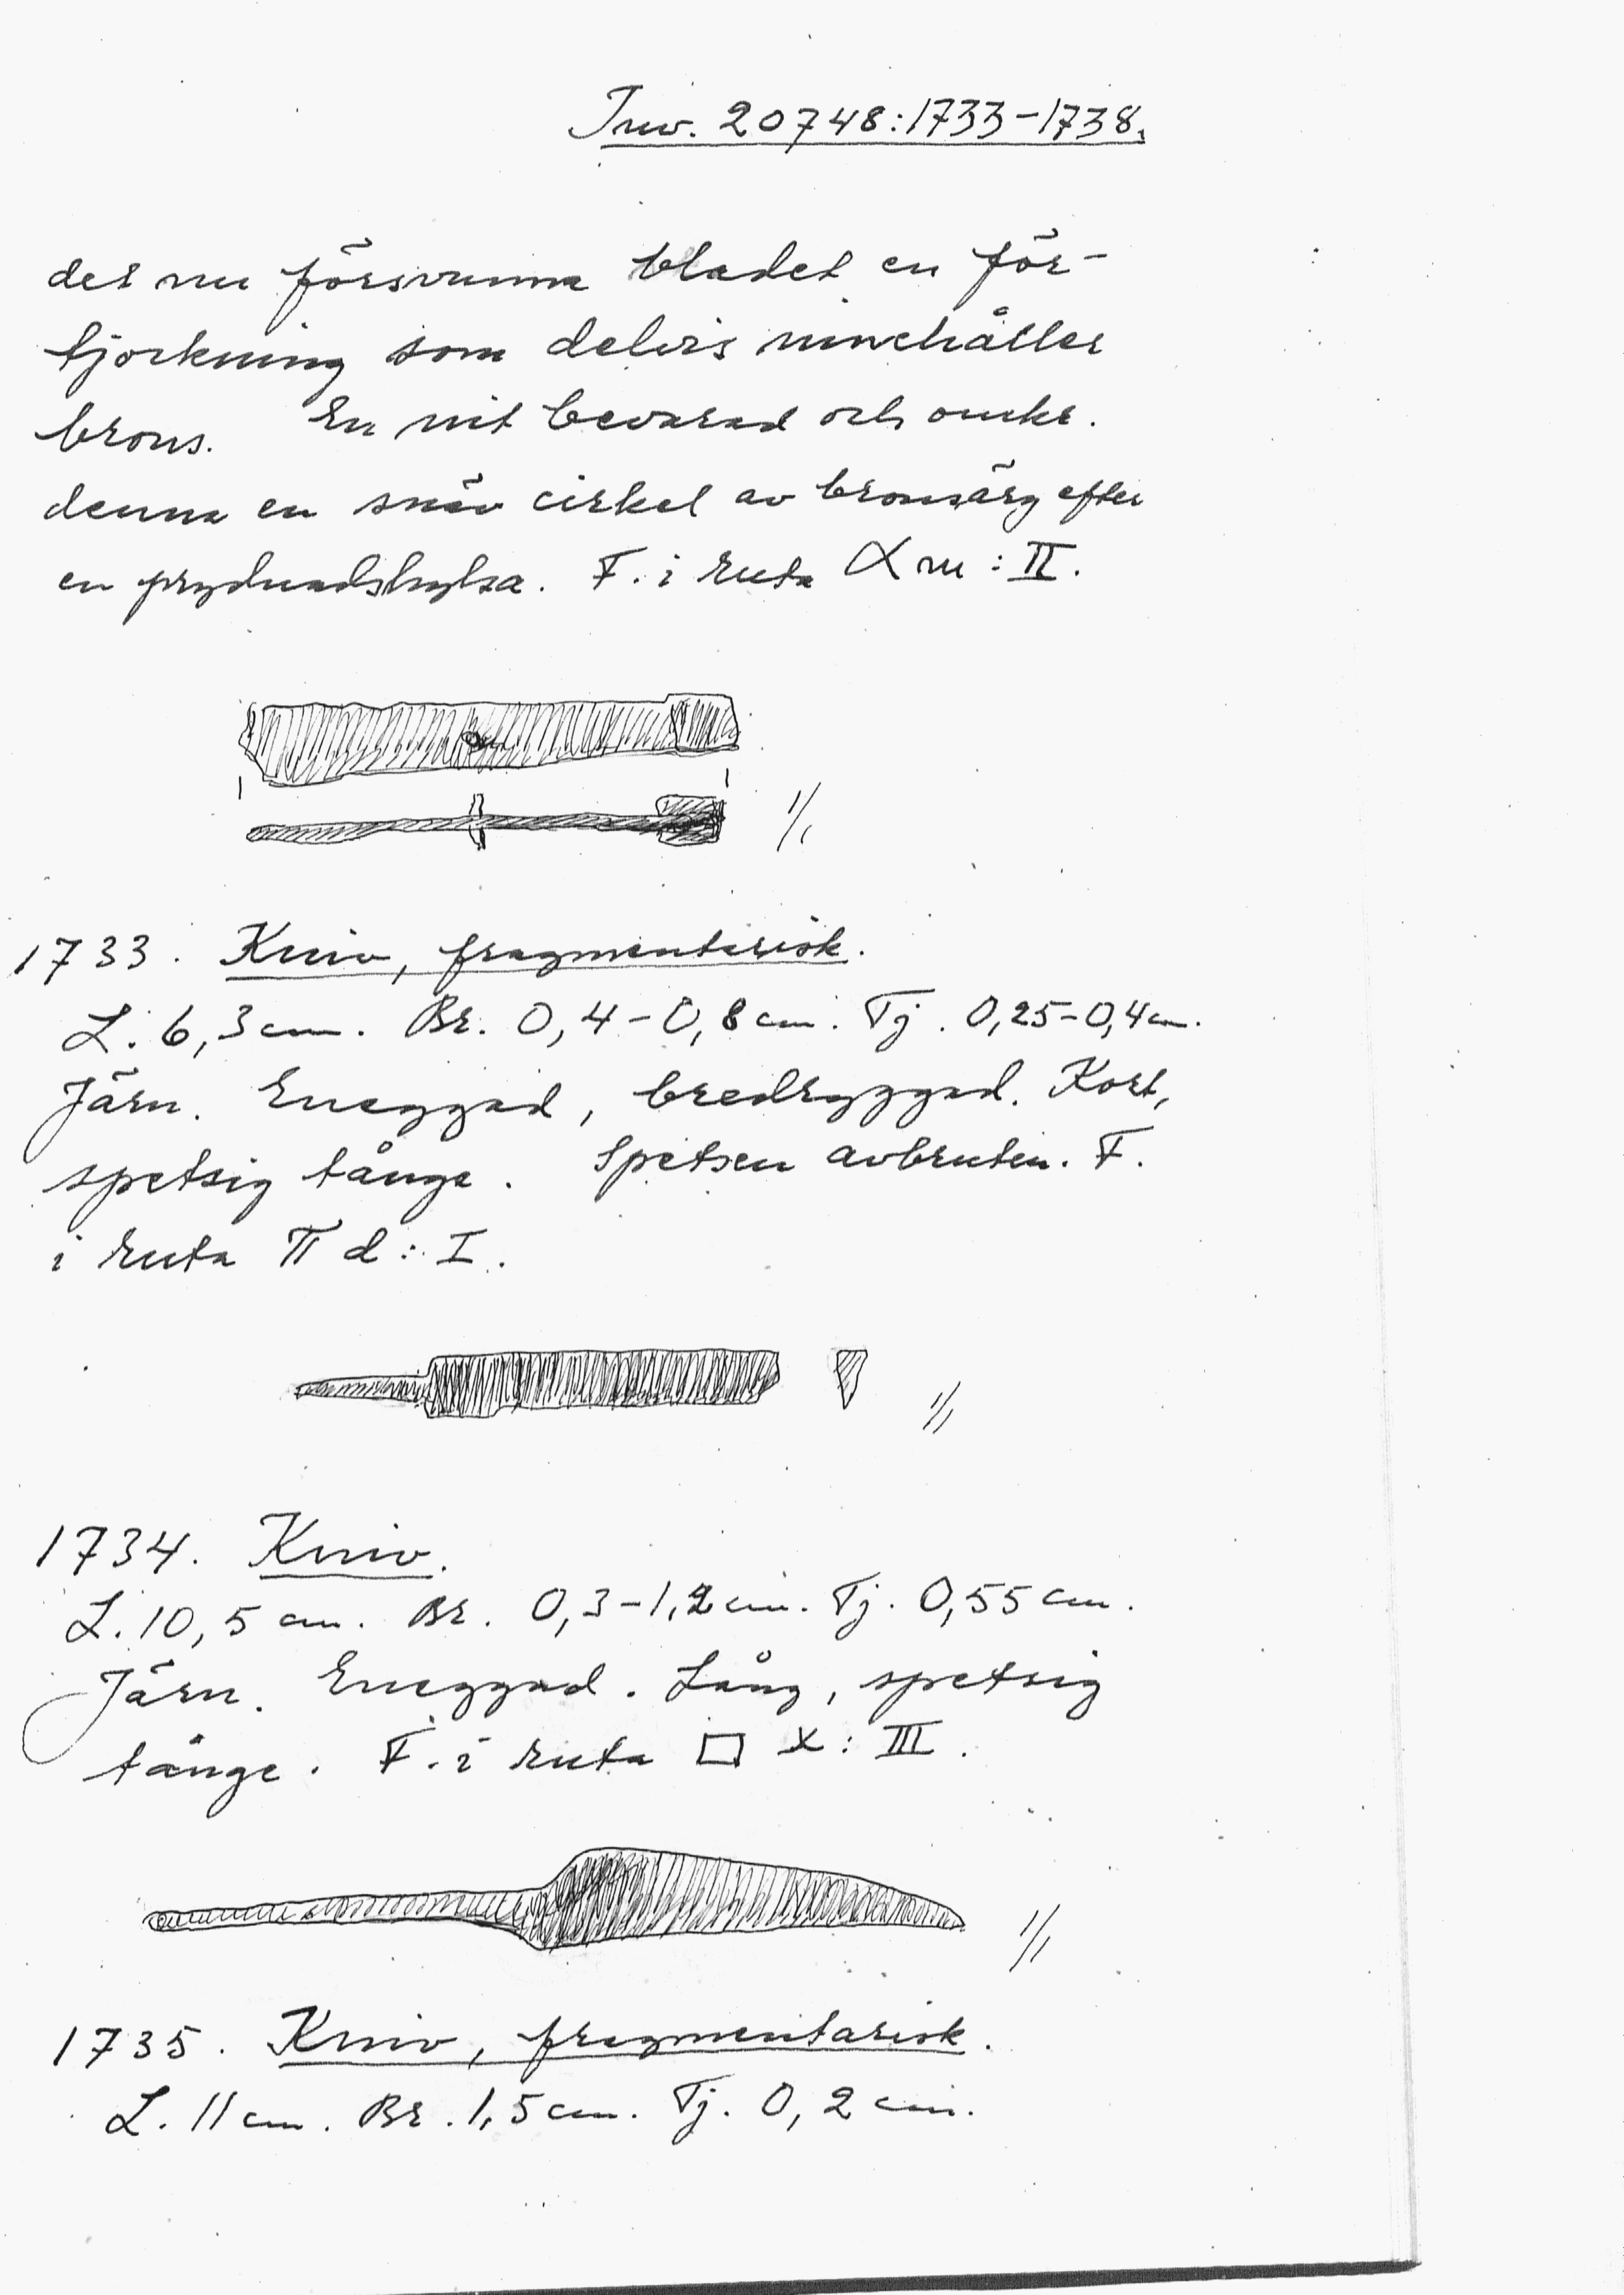 Inv. 20748:1733-1738.
det nu försvunna bladet en för-
tjockning som delvis innehåller
brons. En nit bevarad och omkr.
denna en snäv cirkel av bronsärg efter
en prydnadshylsa. F. i ruta α m : II.
1/1
1733. Kniv, fragmentarisk.
L. 6,3 cm. Br. 0,4-0,8 cm. Tj. 0,25-0,4 cm.
Järn. Eneggad, bredryggad. Kort,
spetsig tånge. Spetsen avbruten. F.
i ruta π d : I.
1/1
1734. Kniv.
L. 10,5 cm. Br. 0,3-1,2 cm. Tj. 0,55 cm.
Järn. Eneggad. Lång, spetsig
tånge. F. i ruta □ x : III.
1/1
1735. Kniv, fragmentarisk.
L. 11 cm. Br. 1,5 cm. Tj. 0,2 cm.